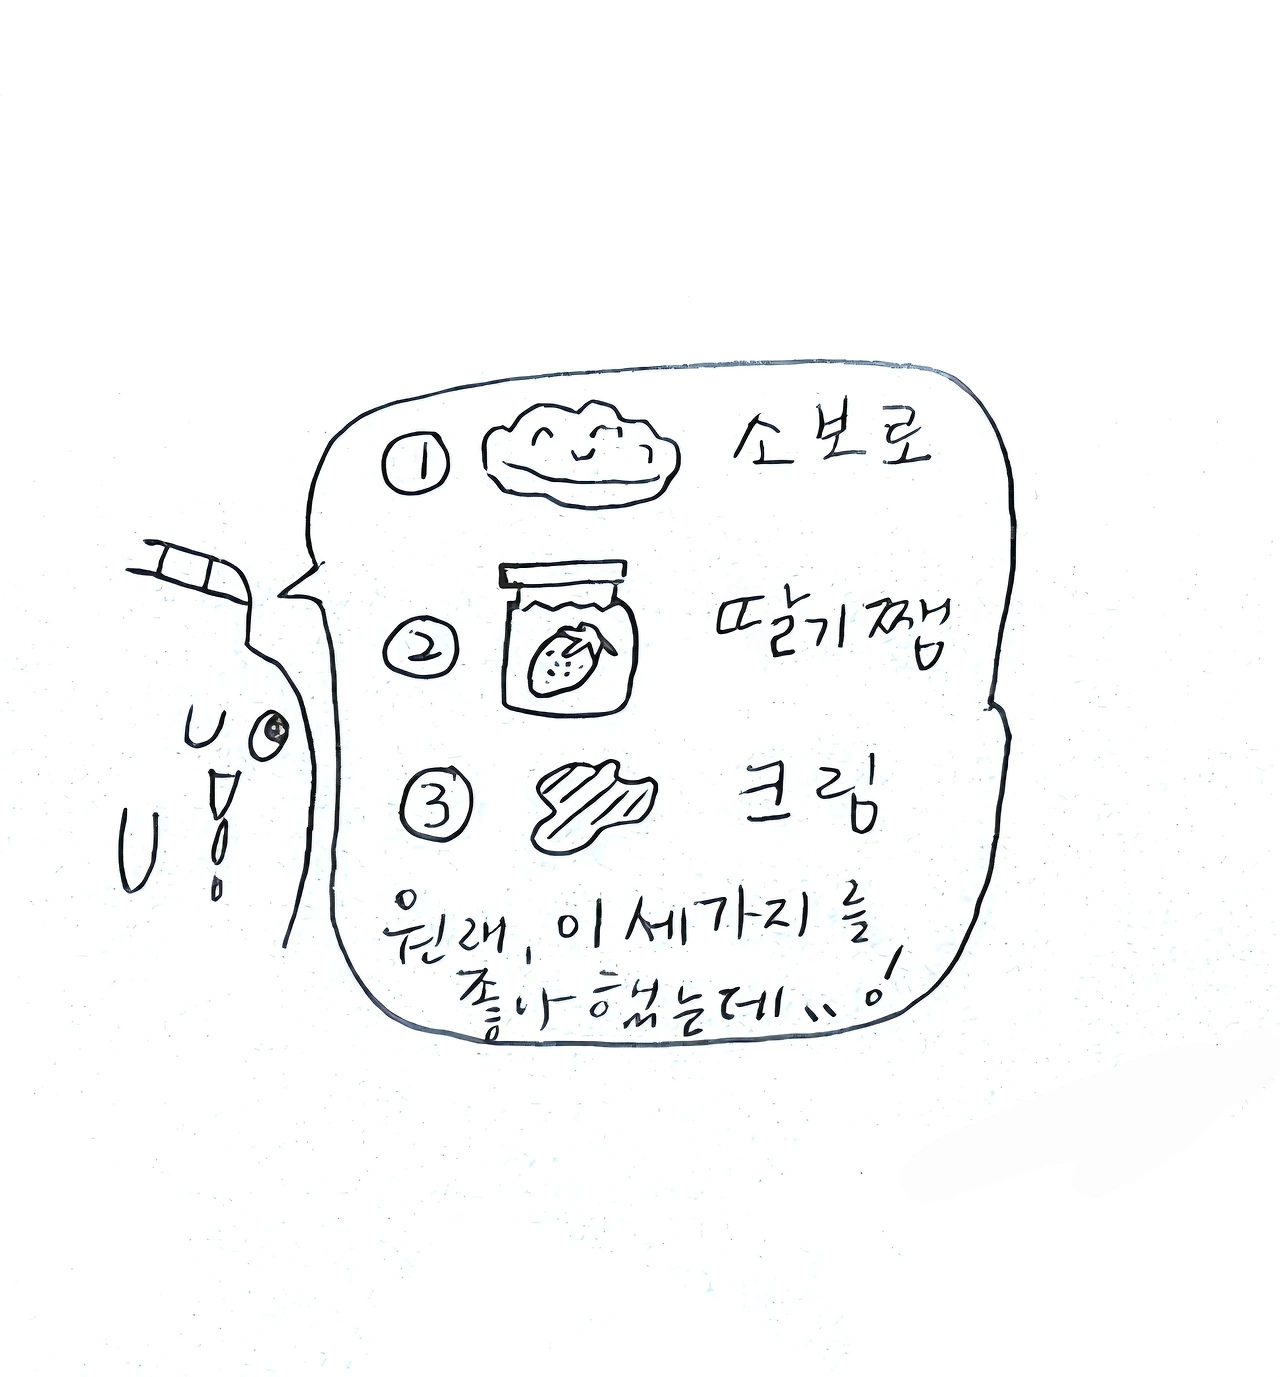 ① 소보로
② 딸기쨈
③ 크림
원래, 이 세가지를
좋아했는데..!